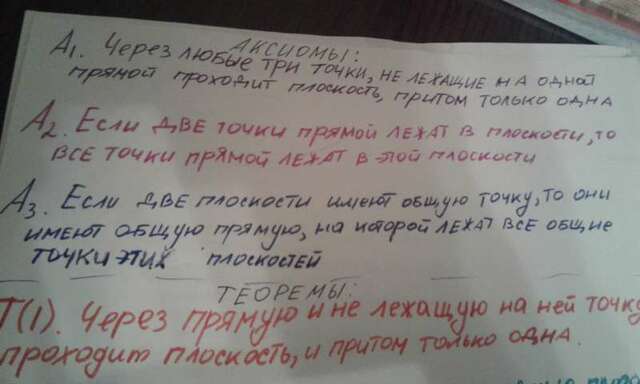 АКСИОМЫ:
А1. Через любые три точки, не лежащие на одной
прямой проходит плоскость, притом только одна
А2. Если две точки прямой лежат в плоскости, то
все точки прямой лежат в этой плоскости
А3. Если две плоскости имеют общую точку, то они
имеют общую прямую, на которой лежат все общие
точки этих плоскостей
ТЕОРЕМЫ:
Т(1). Через прямую и не лежащую на ней точку
проходит плоскость, и притом только одна.